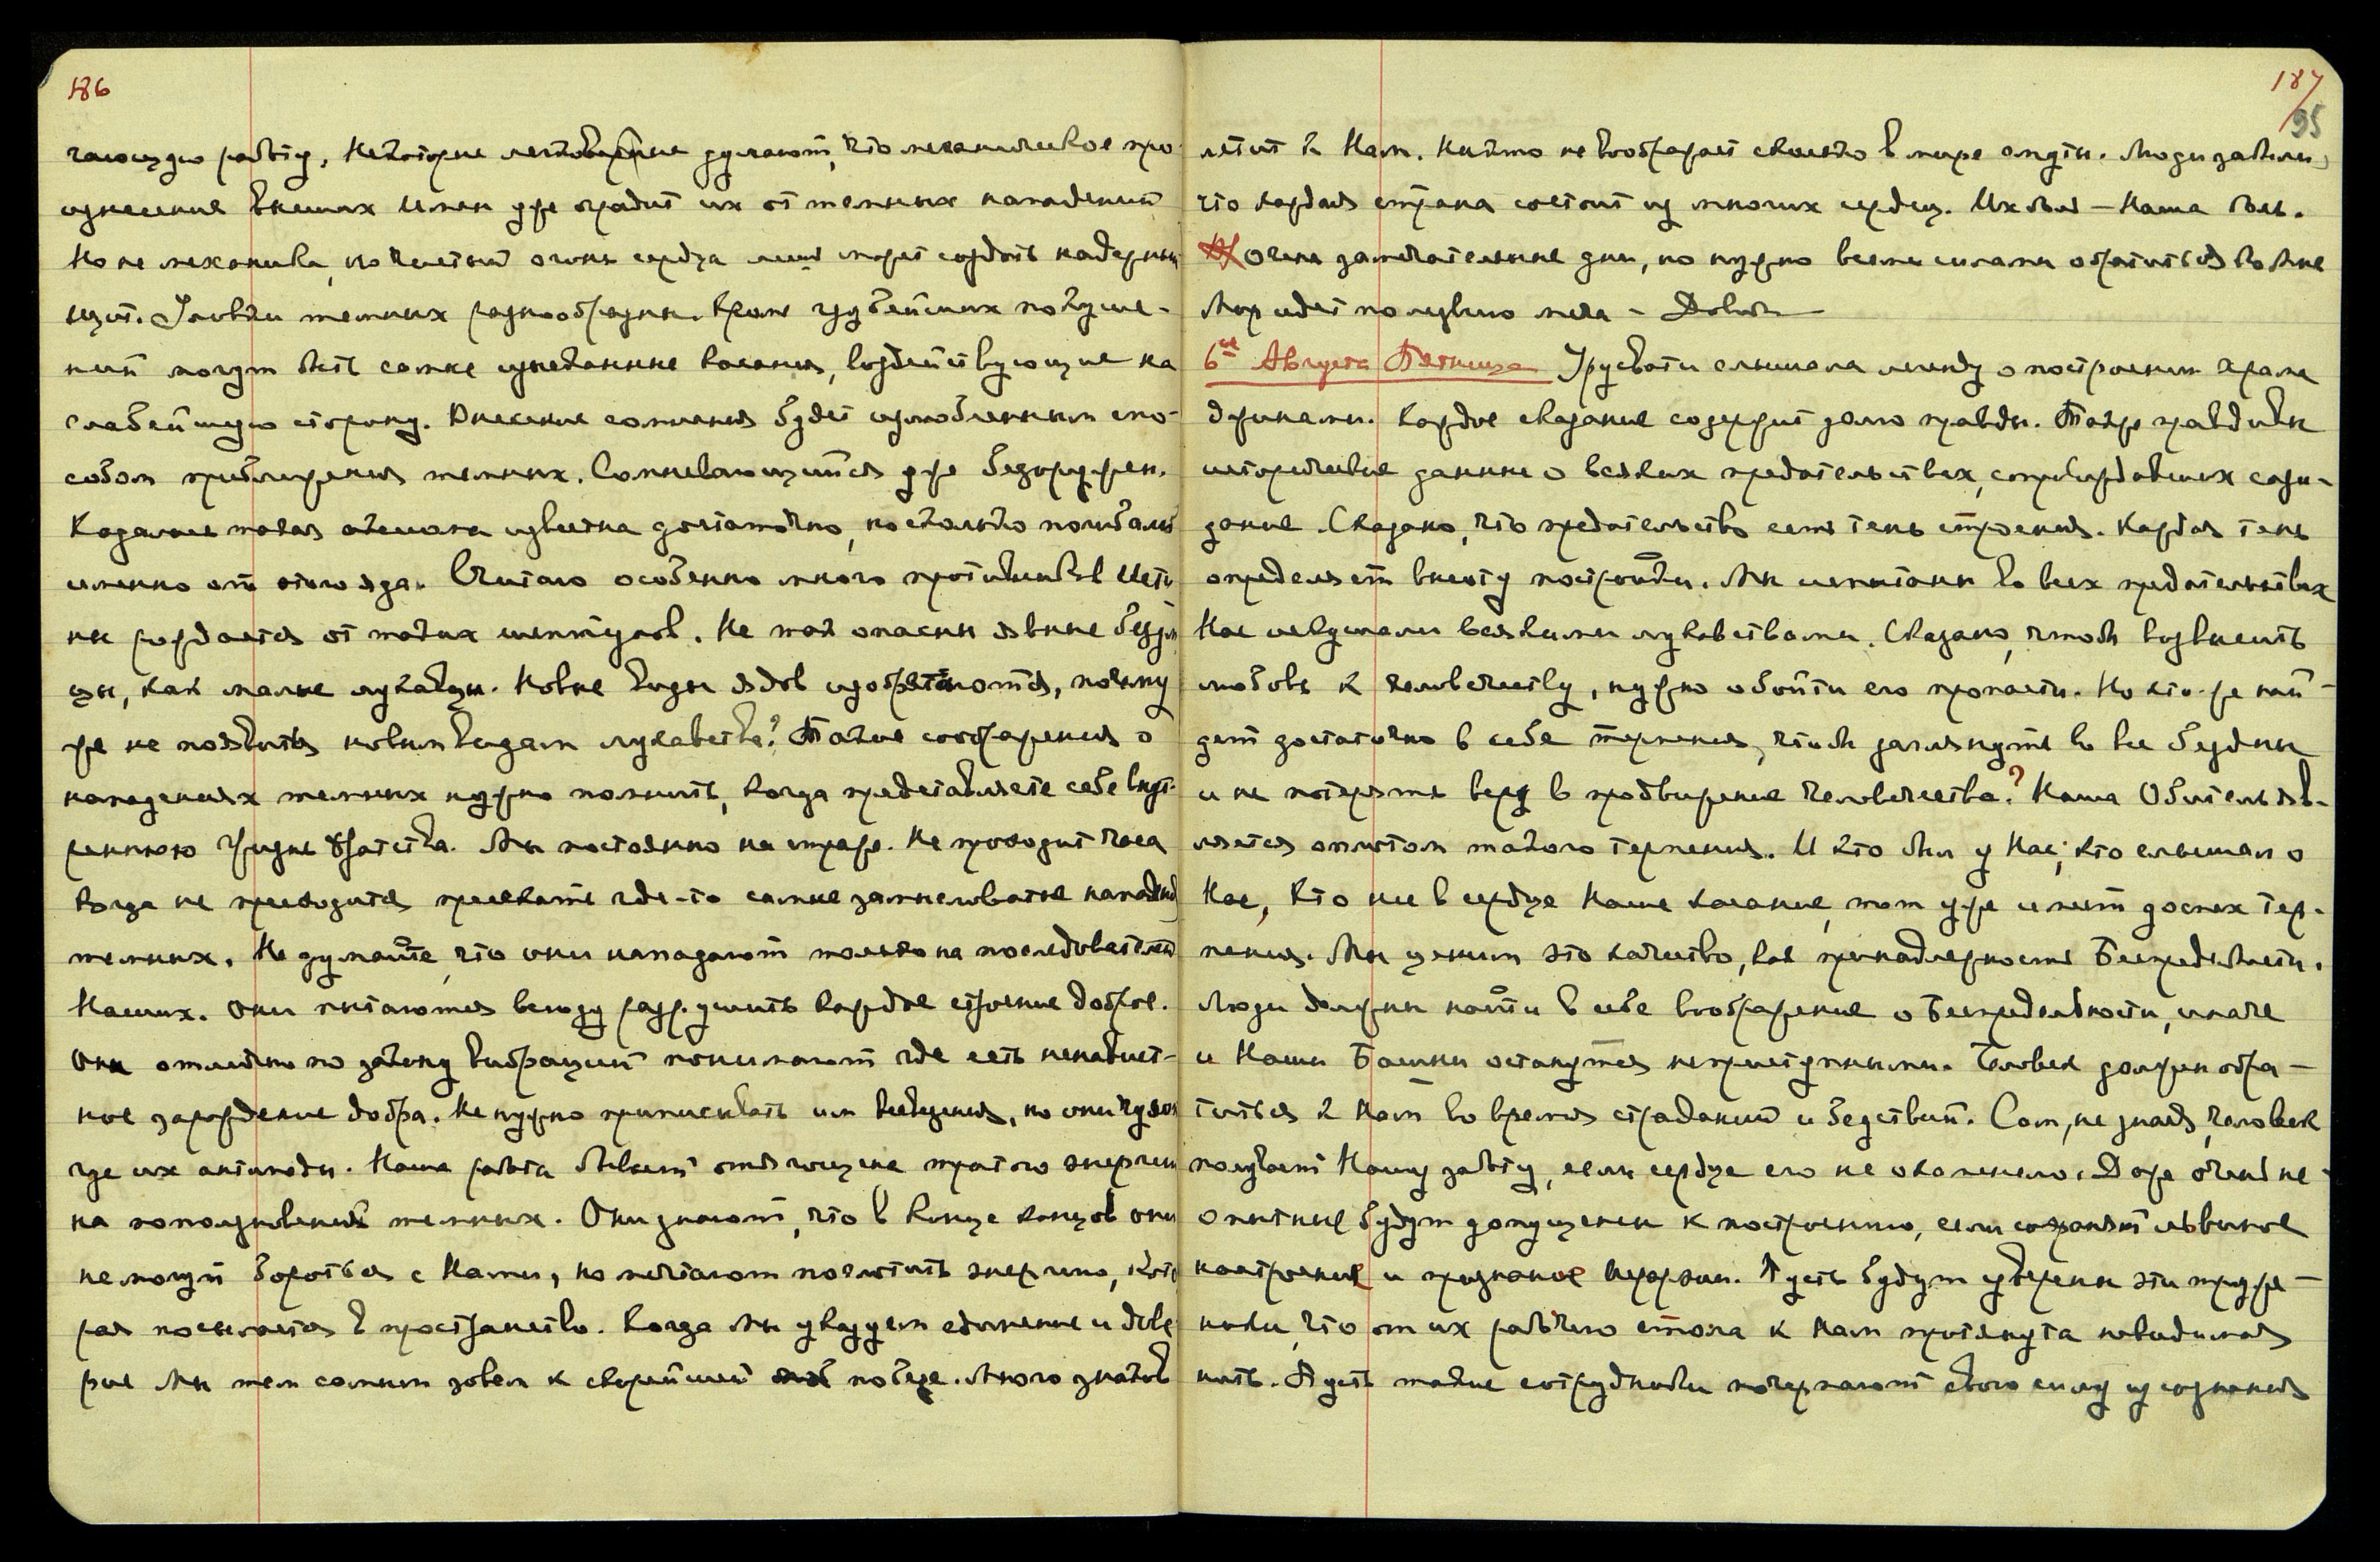 186
чающую работу. Некоторые легковерные думают, что механическое про-
изнесение высших Имен уже оградит их от темных нападений
Но не механика, но чистый огонь сердца лишь может создать надежный
щит. Уловки темных разнообразны. Кроме грубейших покуше-
ний могут быть самые изысканные касания, воздействующие на
слабейшую сторону. Внесение сомнения будет излюбленным спо-
собом приближения темных. Сомневающийся уже безоружен.
Казалось такая аксиома известна достаточно, но сколько погибало
именно от этого яда. Считаю особенно много противников Исти
ны рождается от таких шептунов. Не так опасны явные безум
цы, как малые лукавцы. Новые виды ядов изобретаются, почему
же не появиться новым видам лукавства? Такие соображения о
нападениях темных нужно помнить, когда представляете себе внут-
реннюю Жизнь Братства. Мы постоянно на страже. Не проходит часа
когда не приходится пресекать где-то самые замысловатые нападения
темных. Не думайте, что они нападают только на последователей
Наших. Они пытаются всюду разрушить каждое строение доброе.
Они отлично по закону вибраций понимают где есть ненавист-
ное зарождение добра. Не нужно приписывать им всеведения, но они чуют
где их антиподы. Наша работа бывает отягощена тратою энергии
на поползновения темных. Они знают, что в конце концов они
не могут бороться с Нами, но мечтают поглотить энергию, кото
рая посылается в пространство. Когда Мы указуем единение и дове
рие Мы тем самым зовем к скорейшей победе. Много знаков
187
95
летит к Нам. Никто не воображает сколько в мире смуты. Люди забыли,
что каждая страна состоит из многих сердец. Их боль – Наша боль.
Очень замечательные дни, но нужно всеми силами обратиться ко Мне
Мир идет по лезвию меча – Довольно
6ое Августа Пятница Урусвати слышала легенду о построении храма
джинами. Каждое сказание содержит долю правды. Также правдивы
исторические данные о всяких предательствах, сопровождавших сози-
дание. Сказано, что предательство есть тень строения. Каждая тень
определяет высоту постройки. Мы испытаны во всех предательствах
Нас искушали всякими лукавствами. Сказано, чтобы возвысить
любовь к человечеству, нужно обойти его пропасти. Но кто же най-
дет достаточно в себе терпения, чтобы заглянуть во все бездны
и не потерять веру в продвижение человечества? Наша Обитель яв-
ляется оплотом такого терпения. И кто был у Нас, кто слышал о
Нас, кто нес в сердце Наше касание, тот уже имеет доспех тер-
пения. Мы ценим это качество, как принадлежность Беспредельности.
Люди должны найти в себе воображение о Беспредельности, иначе
и Наши Башни останутся неприступными. Человек должен обра-
титься к Нам во время страданий и бедствий. Сам, не зная, человек
получает Нашу заботу, если сердце его не окаменело. Даже очень не-
опытные будут допущены к построению, если сохранят львиное
настроение и признание Иерархии. Пусть будут уверены эти труже-
ники, что от их рабочего стола к Нам протянута невидимая
нить. Пусть такие сотрудники почерпают свою силу из сознания